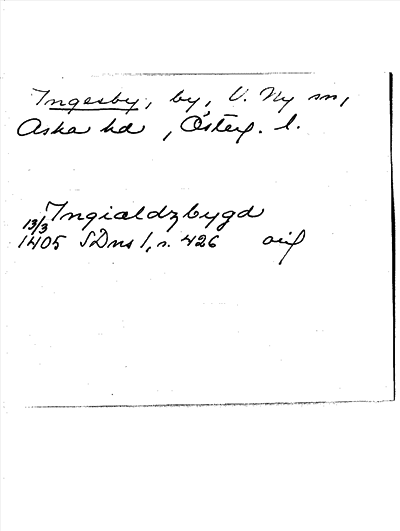 Ingesby, by, V. Ny sn,
Aska hd, Österg. l.
Ingialdzbygd
13/3
1405 SDns 1, s. 426 orig